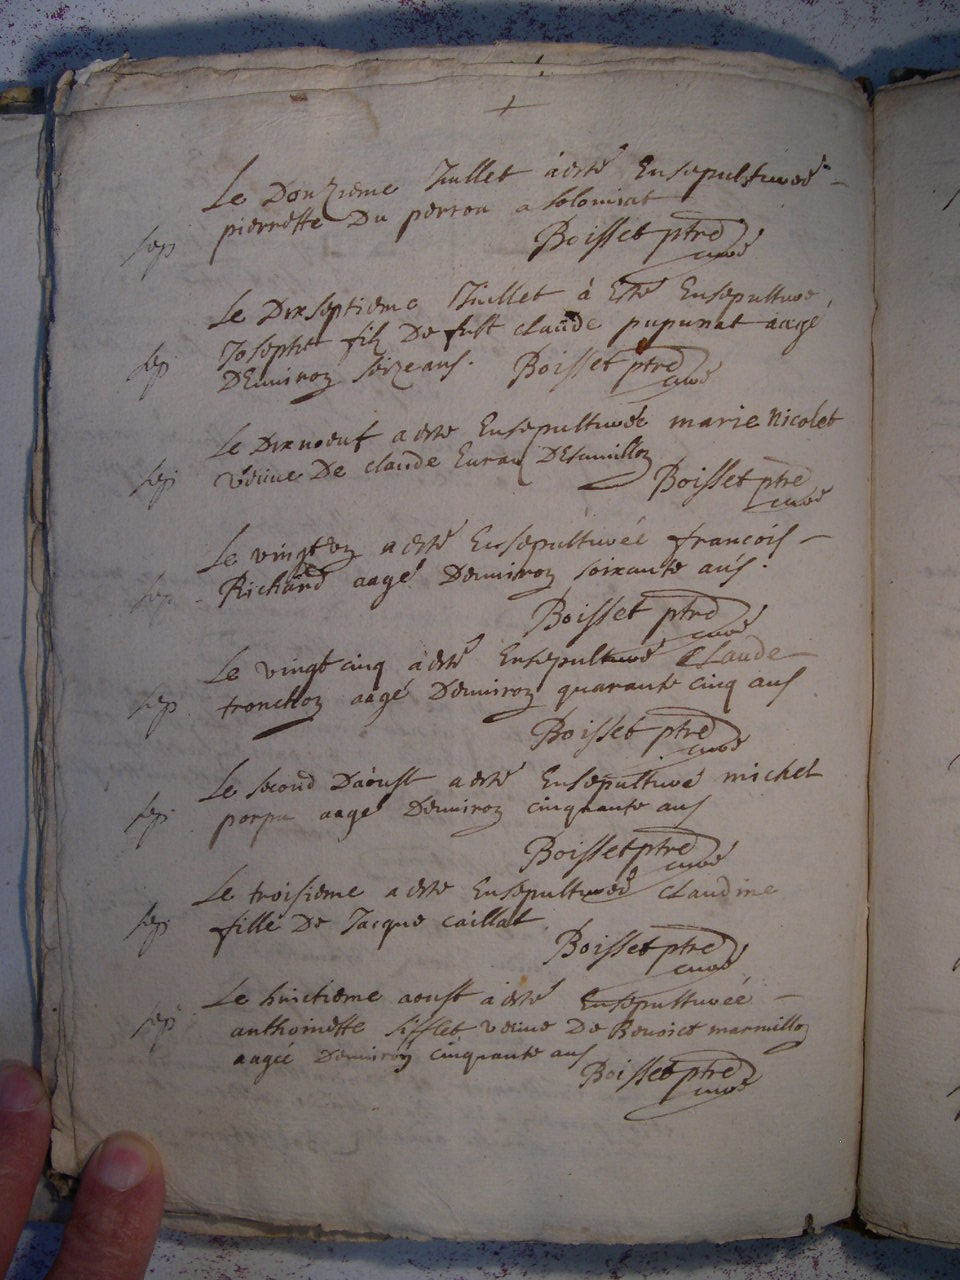 Le Douzieme Juillet à esté Ensepulturée
sep pierrette Du perron a solomiat
Boisset ptre
curé
Le Dixseptieme Juillet à Esté Ensepulture
sep Josephe filz De fust claude pupunat aagé
D'Environ seize ans. Boisset ptre
curé
Le Dixneuf a esté Ensepulturée marie Nicolet
sep veuve De claude
Boisset ptre
curé
Le vingt un a esté Ensepulturée francois
sep Richard aagé D'environ soixante ans.
Boisset ptre
curé
Le vingt cinq à esté Ensepulturé Claude
sep tronchon aagé D'environ quarante cinq ans
Boisset ptre
curé
Le second D'àoust a esté Ensepulturé michel
sep aagé D'environ cinquante ans
Boisset ptre
curé
Le troisieme a esté Ensepulturée Claudine
sep fille De Jacque caillat
Boisset ptre
curé
Le huictieme aoust à esté Ensepulturée
sep anthoinette sifflet veuve De Benoict marmillon
aagée D'environ cinquante ans
Boisset ptre
curé